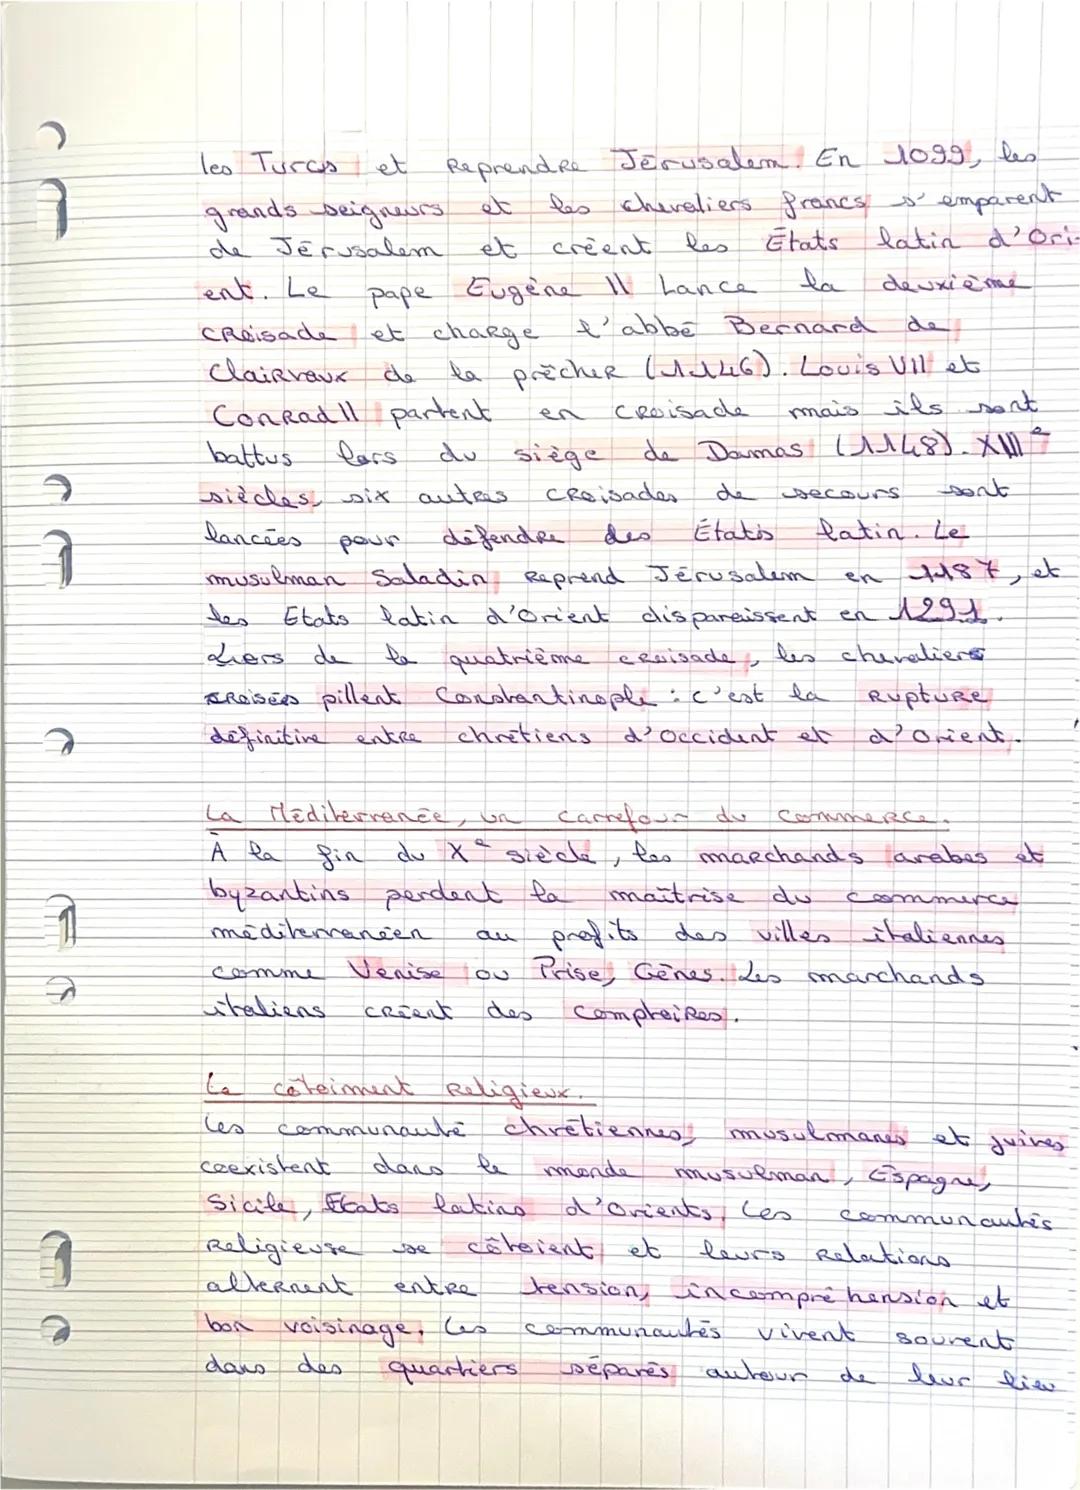 les Turcs et Reprendre Jérusalem. En 1099, les
grands seigneurs et les chevaliers francs s'emparent
de Jérusalem et créent les États latin d'Ori-
ent. Le pape Eugène II Lance la deuxième
CRoisade et chaRge l'abbé Bernard de
ClaiRvaux de la prêcher (1146). Louis VII et
ConRad II partent en cRoisade mais ils sont
battus lors du siège de Damas (1148). XIIIe
siècles, six autres cRoisades de secours sont
lancées pour défendRe des États latin. Le
musulman Saladin Reprend Jérusalem en 1187, et
les Etats latin d'Orient dispareissent en 1291.
Lors de la quatrième croisade, les chevaliers
cRoisées pillent Constantinople : c'est la RuptuRe
définitive entRe chrétiens d'Occident et d'Orient.
La Méditerranée, un carrefour du commeRce.
À la fin du Xe siècle, les maRchands arabes et
byzantins perdent la maîtrise du commerce
méditerranéen au profits des villes italiennes
comme Venise ou Prise, Gênes. Les marchands
italiens cRéent des comptoiRes.
Le côtoiment Religieux.
Les communauté chrétiennes, musulmanes et juives
coexistent dans le monde musulman, Espagne,
Sicile, Etats latins d'Orients. Les communautés
Religieuse se côtoient et leurs Relations
alteRnent entRe tension, incompréhension et
bon voisinage. Les communautés vivent souvent
dans des quartiers séparés autour de leur lieu